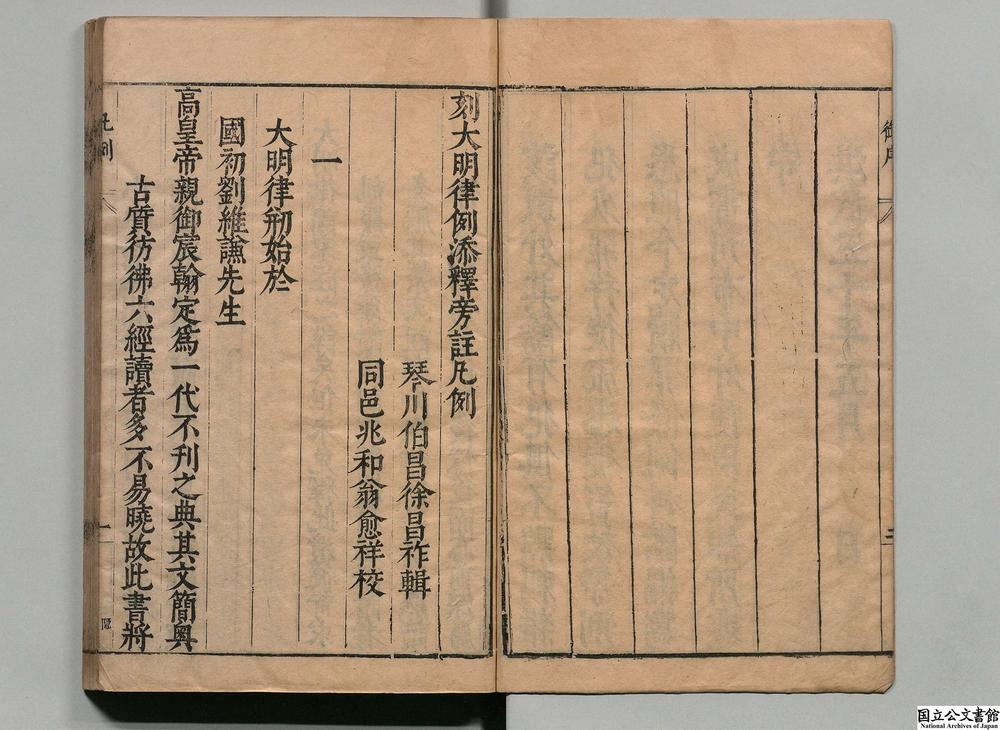 刻大明律例添釋旁註凡例
琴川伯昌徐昌祚輯
同邑兆和翁愈祥校
一
大明律刱始於
國初劉維謙先生
高皇帝親御宸翰定爲一代不刊之典其文簡奧
古質彷彿六經讀者多不易曉故此書將
凡例
一
三
国立公文書館
National Archives of Japan